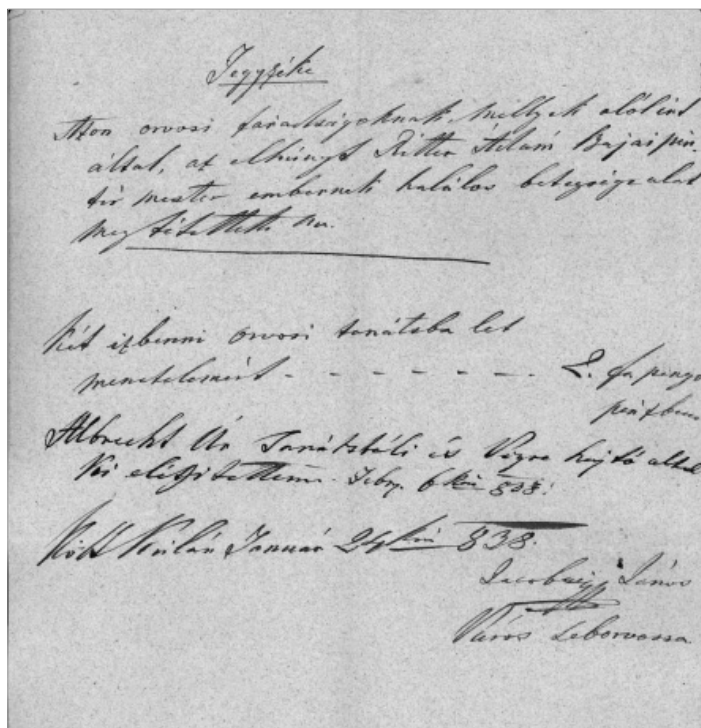 Jegyzéke
Azon orvosi fáradságoknak, mellyek alólirt
által, az elhúnyt Ritter Ádám Bajai pin-
tér mester embernek halálos betegsége alat
meg tétettettek
Két izbenni orvosi tanátsba let
menetelemért - - - - - - - 2. pengő
pénzben
Albrecht Úr Tanátsbéli és Végre hajtó által
ki elégitettem. Febr. 6kán 838.
Költ Január 24kén 838.
János
Város Seborvossa